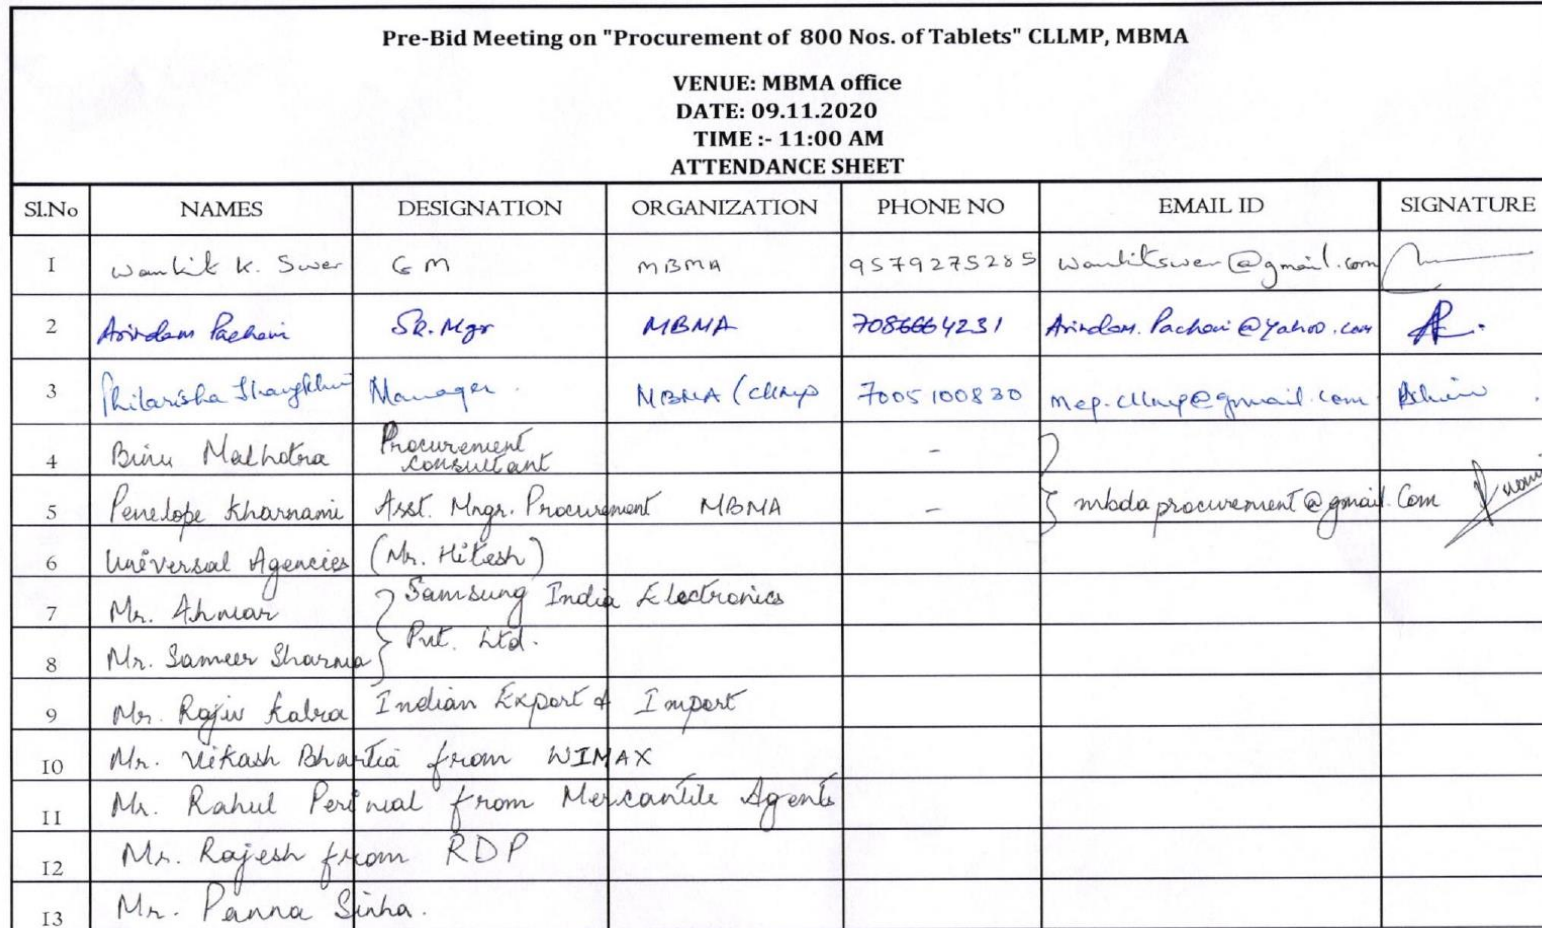 Pre-Bid Meeting on "Procurement of 800 Nos. of Tablets" CLLMP, MBMA
VENUE: MBMA office
DATE: 09.11.2020
TIME :- 11:00 AM
ATTENDANCE SHEET
Sl.No NAMES DESIGNATION ORGANIZATION PHONE NO EMAIL ID SIGNATURE
1 Wankit K. Swer GM MBMA 9579275285 wankitswer@gmail.com
2 Arindam Pachani Sr. Mgr MBMA 7086664231 Arindam.Pachani@yahoo.com
3 Manager MBMA (CLLMP 7005100830 mep.cllmp@gmail.com
4 Binu Malhotra Procurement consultant -
5 Penelope Kharnami Asst. Mngr. Procurement MBMA - } mbdaprocurement@gmail.com
6 Universal Agencies (Mr. Hitesh)
7 Mr. Ahmar } Samsung India Electronics
8 Mr. Sameer Sharma Pvt. Ltd.
9 Mr. Rajiv Kabra Indian Export & Import
10 Mr. Vikash Bhartia from WIMAX
11 Mr. Rahul Periwal from Mercantile Agents
12 Mr. Rajesh from RDP
13 Mr. Panna Sinha.